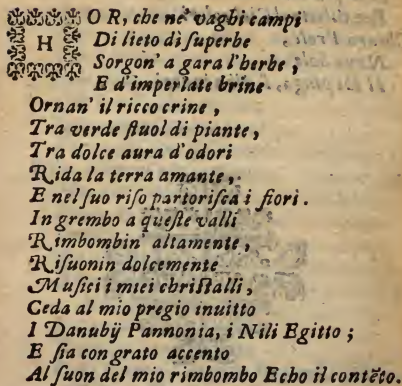 HOR, che ne' vaghi campi
Di lieto dì superbe
Sorgon' a gara l'herbe ;
E d'imperlate brine
Ornan' il ricco crine ,
Tra verde ſtuol di piante ,
Tra dolce aura d'odori
Rida la terra amante ,
E nel ſuo riſo partoriſca i fiori .
In grembo a queſte valli
Rimbombin' altamente ,
Riſuonin dolcemente
Muſici i miei chriſtalli ,
Ceda al mio pregio inuitto
I Danubij Pannonia, i Nili Egitto ;
E ſia con grato accento
Al ſuon del mio rimbombo Echo il contẽto.